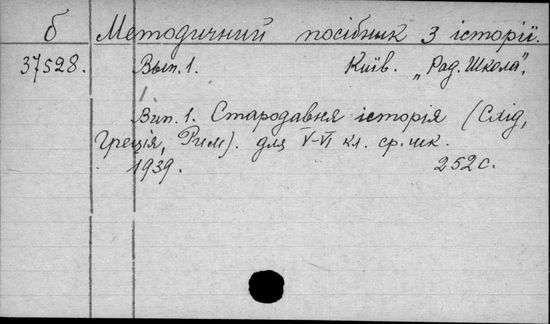 б Методичний посібник з історії.
37528. Вып. 1. Київ. „Рад. Школа",
Вип. 1. Стародавня історія (Схід,
Греція, Рим). для V-VI кл. ср. шк.
1939. 252 с.